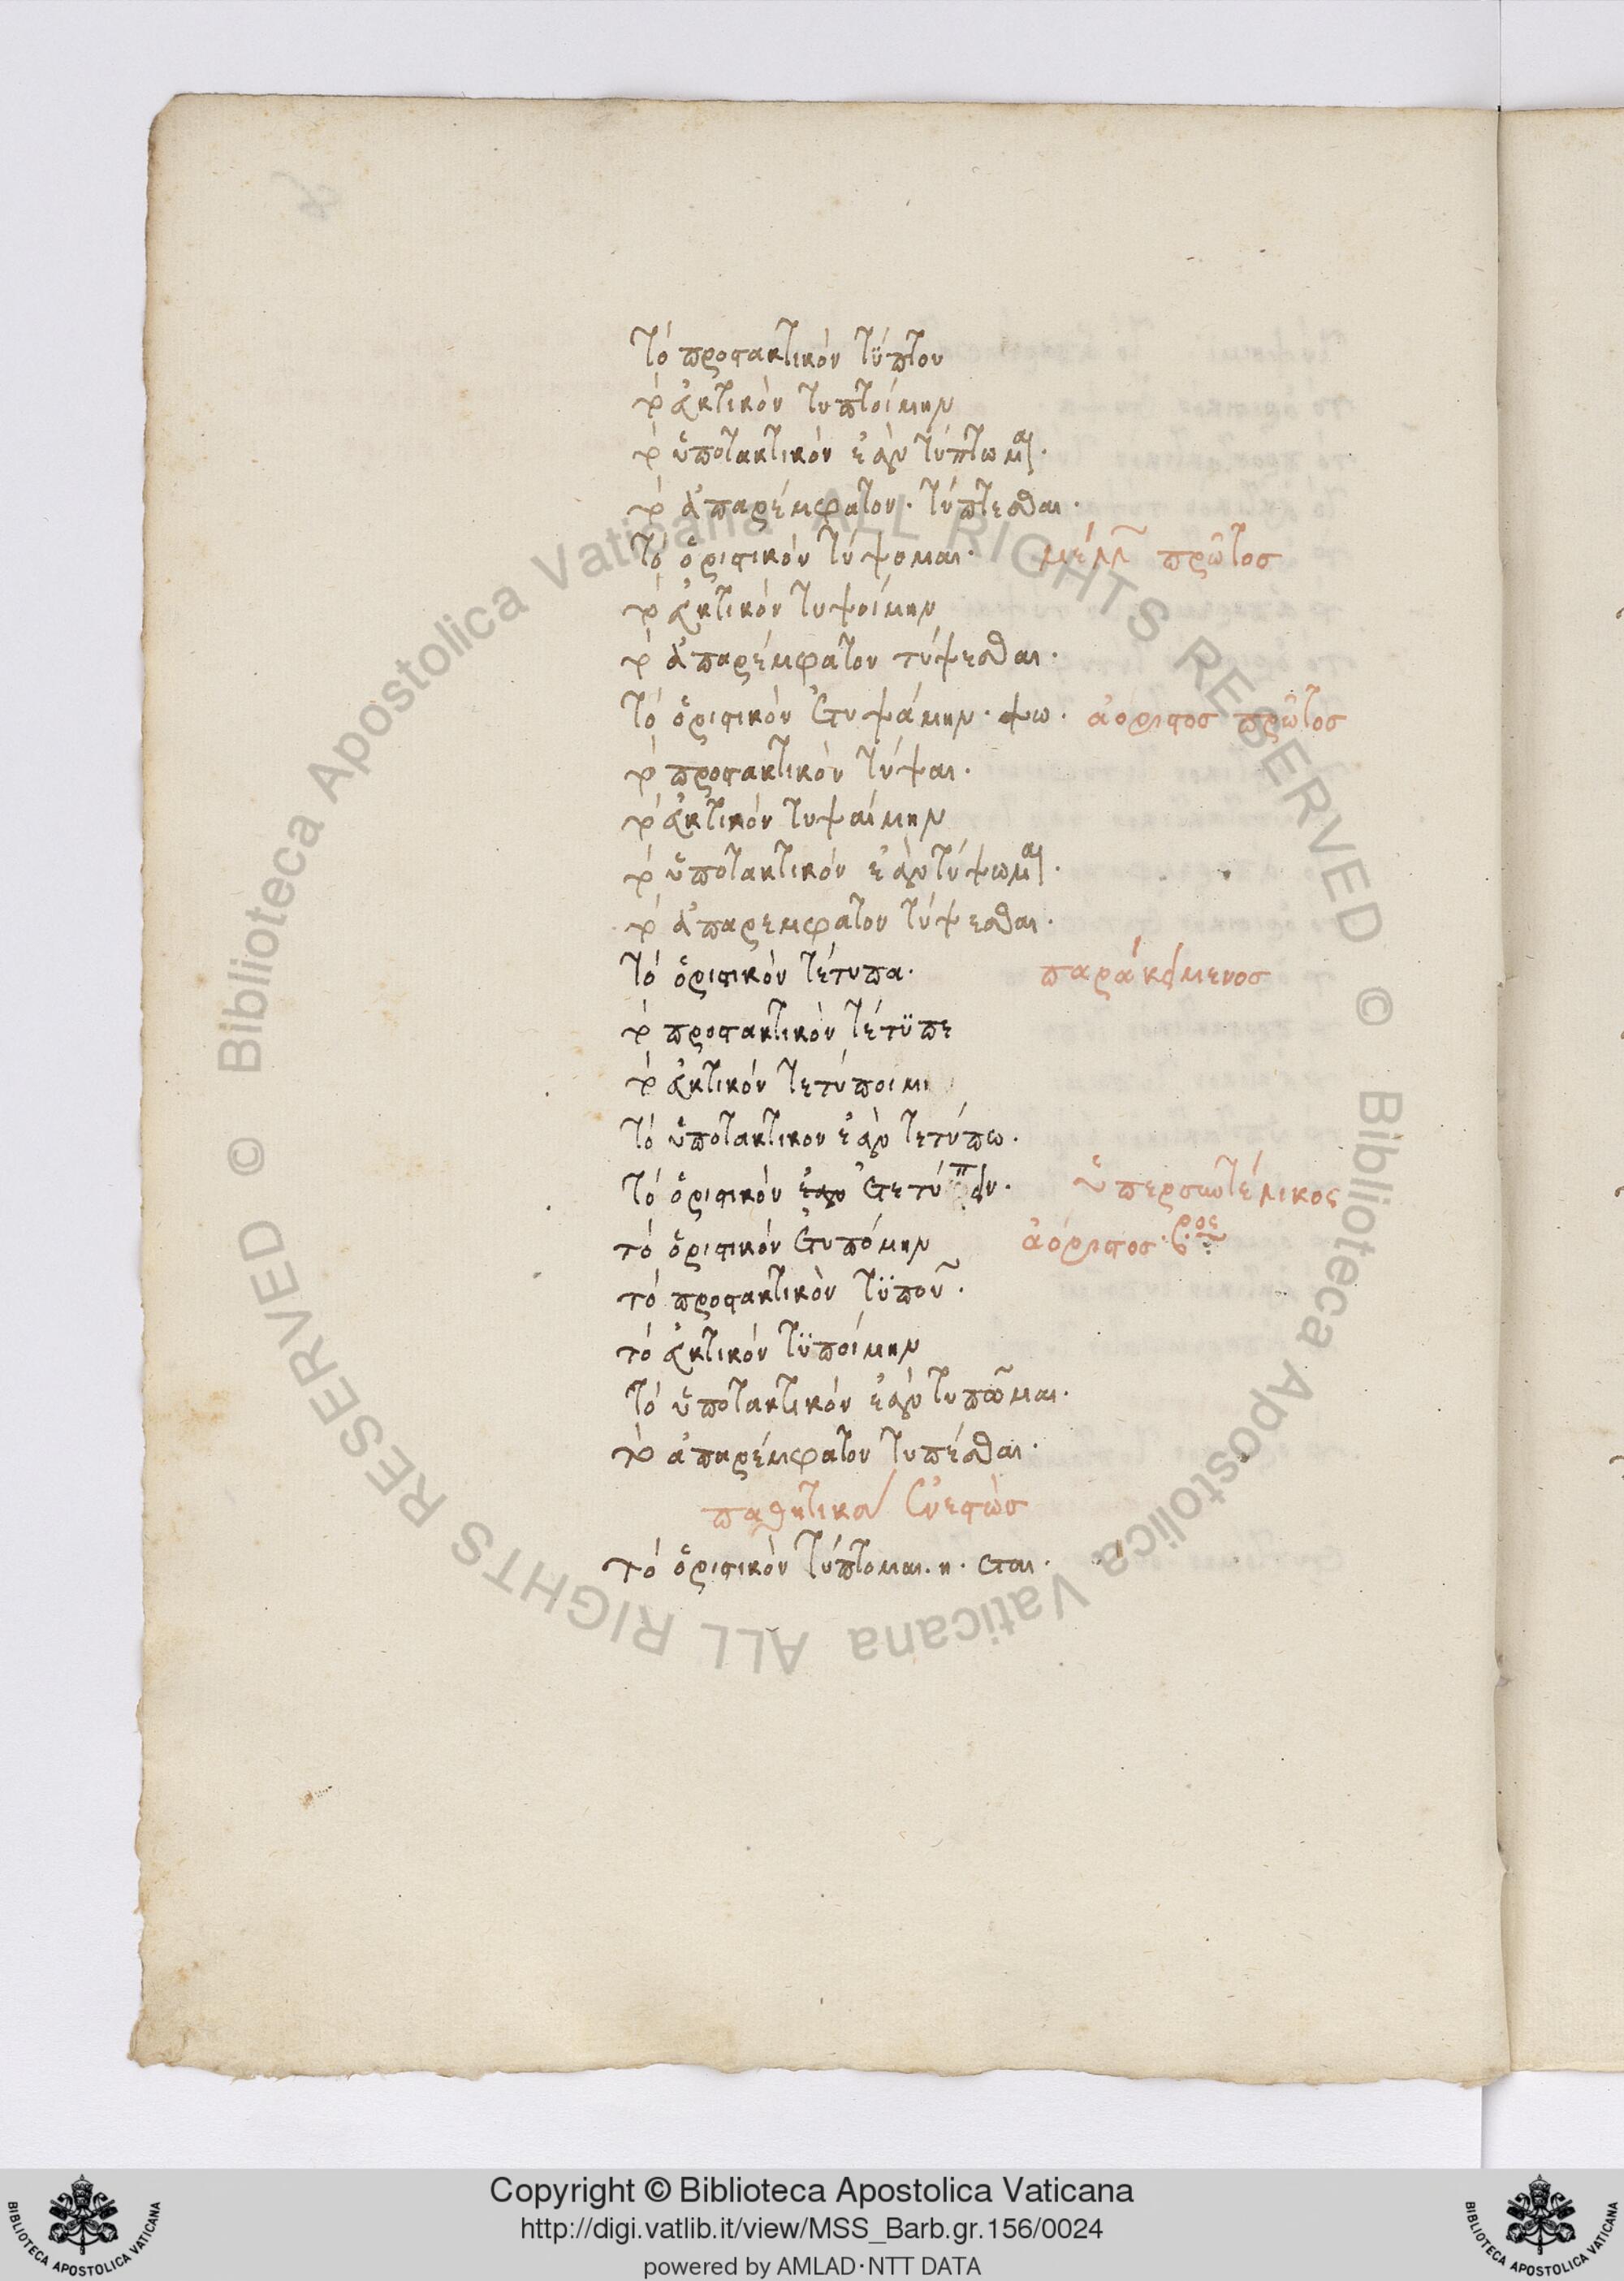 τὸ προστακτικὸν τύπτου
τὸ εὐκτικὸν τυπτοίμην
τὸ ὑποτακτικὸν ἐὰν τύπτωμαι.
τὸ ἀπαρέμφατον. τύπτεσθαι.
τὸ ὁριστικὸν τύψομαι. μέλλ πρῶτοσ
τὸ εὐκτικὸν τυψοίμην
τὸ ἀπαρέμφατον τύψεσθαι.
τὸ ὁριστικὸν ἐτυψάμην. ψω. ἀόριστοσ πρῶτοσ
τὸ προστακτικὸν τύψαι.
τὸ εὐκτικὸν τυψαίμην
τὸ ὑποτακτικὸν ἐὰν τύψωμαι.
τὸ ἀπαρεμφατον τύψεσθαι.
τὸ ὁριστικὸν τέτυπα. παράκείμενοσ
τὸ προστακτικὸν τέτϋπε
τὸ εὐκτικὸν τετύποιμι
τὸ ὑποτακτικον ἐὰν τετύπω.
τὸ ὁριστικὸν ἐὰν ἐτετύπειν. ὑπερσυντέλικος
τὸ ὁριστικὸν ἐτυπόμην ἀόριστοσ. β.ρος
τὸ προστακτικὸν τϋποῦ.
τὸ εὐκτικὸν τϋποίμην
τὸ ὑποτακτικὸν ἐὰν τυπῶμαι.
τὸ ἀπαρέμφατον τυπέσθαι.
παθητικὰ ἐνεστὼσ
τὸ ὁριστικὸν τύπτομαι. η. εται.
© Biblioteca Apostolica Vaticana ALL RIGHTS RESERVED © Biblioteca Apostolica Vaticana ALL RIGHTS RESERVED
Copyright © Biblioteca Apostolica Vaticana
http://digi.vatlib.it/view/MSS_Barb.gr.156/0024
powered by AMLAD·NTT DATA
BIBLIOTECA APOSTOLICA VATICANA
BIBLIOTECA APOSTOLICA VATICANA